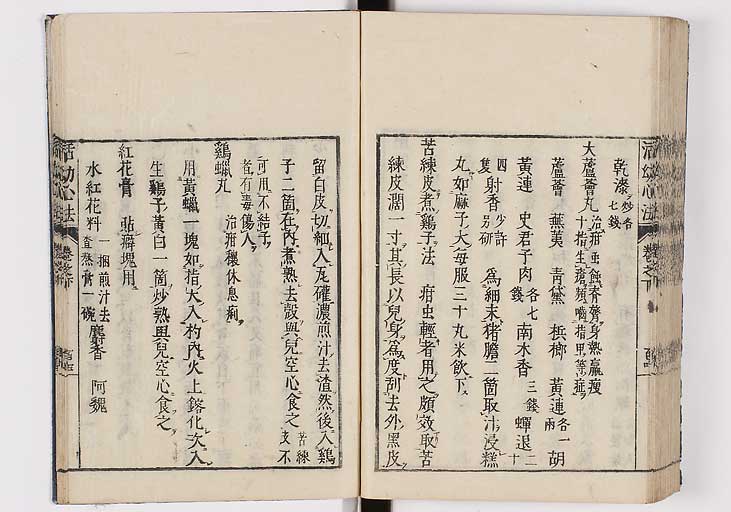 活幼心法 卷之下
乾漆炒各七錢
大蘆薈丸治疳虫蝕脊膂身熱羸瘦十指生瘡頻嚙指甲等症
蘆薈 蕪荑 青黛 梹榔 黃連各一兩 胡
黃連 史君子肉各七錢 南木香三錢 蟬退二十
四隻 射香少許別研 為細末猪膽二箇取汁浸糕
丸如麻子大每服三十丸米飲下
苦練皮煮鷄子法 疳虫輕者用之頗效取苦
練皮濶一寸其長以兒身為度刮去外黑皮
留白皮切細入瓦確濃煎汁去渣然後入鷄
子二箇在內煮熟去殼與兒空心食之苦練支不
可用不結子者有毒傷人
鷄蠟丸 治疳積休息痢
用黃蠟一塊如指大入杓內火上鎔化次入
生鷄子黃白一箇炒熟與兒空心食之
紅花膏 貼癖塊用
水紅花料一捆煎汁去查熬膏一碗 麝香 阿魏
活幼心法